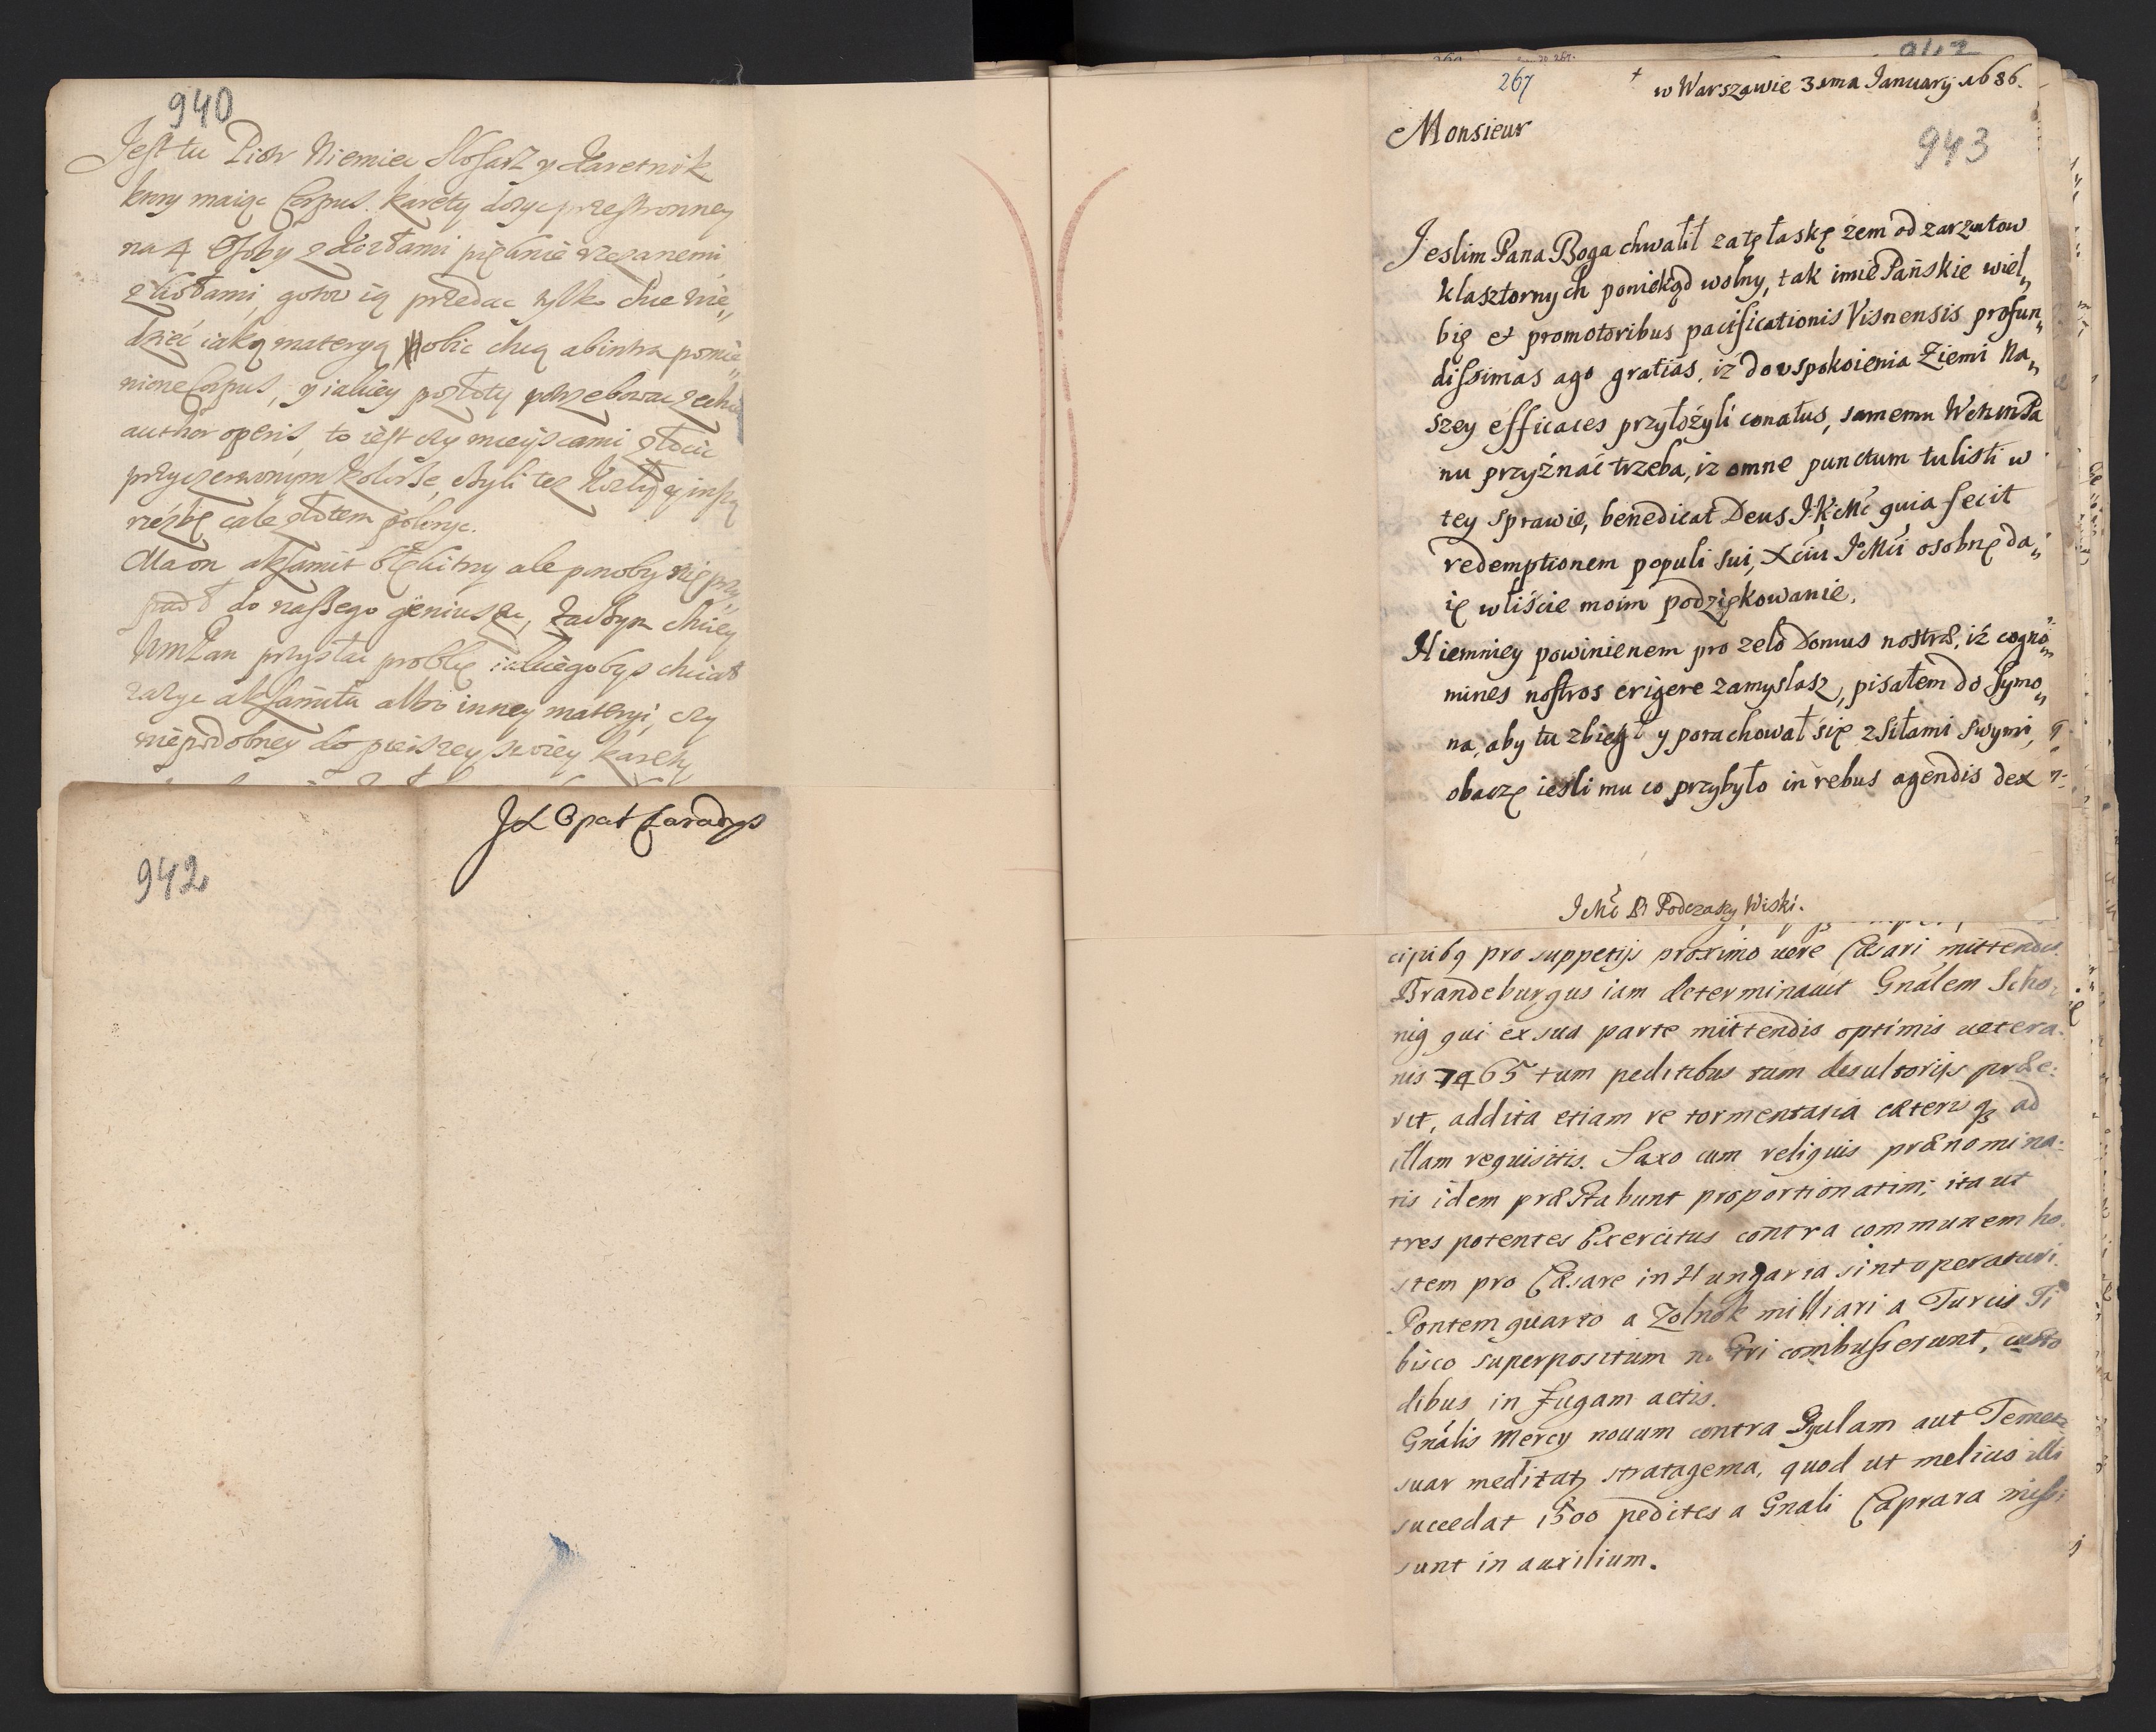 940
Jest tu Piotr Niemiec Slosarz y Karetnik
ktory maiąc Corpus Karety dosyc przestronney
na 4 Osoby z Kozłami pięknie rzezanemi
gotow ią przedac tylko chce wie„
dzieć iaką materyą obic chcą ab intra pomie„
nione Corpus, y iakiey pozłoty potrzebowac zechce
author operis, to iest czy mieyscami złocic
przy czerwonym kolorze, czyli tez Kozły y inszą
rzezbę cale złotem połozyc.
Ma on aksamit błękitny ale ponoby nie przy„
padł do naszego geniuszu, zaczym chciey
WmPan przysłac probkę iakiegobys chciał
zazyc aksamitu albo inney materyi, czy
niepodobney do pieiszey swoiey karety
JX Opat
942
267
942
† w Warszawie 31ma Ianuarij 1686.
943
Monsieur
Jeslim Pana Boga chwalił zatę łaskę żem od zarzutow
klasztornych poniekąd wolny, tak imie Pańskie wiel„
bię et promotoribus pacificationis Visnensis profun„
dissimas ago gratias, iż do uspokoienia Ziemi Na„
szey efficaces przyłożyli conatus, samemu WMMPa
nu przyźnać trzeba, iz omne punctum tulisti w
tey sprawie, benedicat Deus J.K.Mć quia fecit
redemptionem populi sui, Xciu JeMći osobnę da„
ię w liście moim podziękowanie.
Niemniey powinienem pro zelo Domus nostræ, iż cogno„
mines nostros erigere zamyslasz, pisałem do Symo„
na, aby tu zbiegł y porachował się z siłami swymi,
obaczę iesli mu co przybyło in rebus agendis dex
JeMć P. Podczaszy Wiski.
cipibq pro suppetijs proximo vere Cæsari mittendis.
Brandeburgus iam determinauit Gnâlem Scho„
nig qui ex sua parte mittendis optimis uetera„
nis 7465 tum peditibus tum desultorijs præe„
rit, addita etiam re tormentaria cæterisq; ad
illam requisitis. Saxo cum reliquis prænomina„
tis idem præstabunt proportionatim; ita ut
tres potentes Exercitus contra communem ho„
stem pro Cæsare in Hungaria sint operaturi.
Pontem quarto a Zolnok milliari a Turcis Ti
bisco superpositum nostri combusserunt, custo
dibus in fugam actis.
Gnâlis Mercy nouum contra Gyulam aut Temes„
uar meditatq stratagema, quod ut melius illi
succedat 1500 pedites a Gnali Caprara missi
sunt in auxilium.